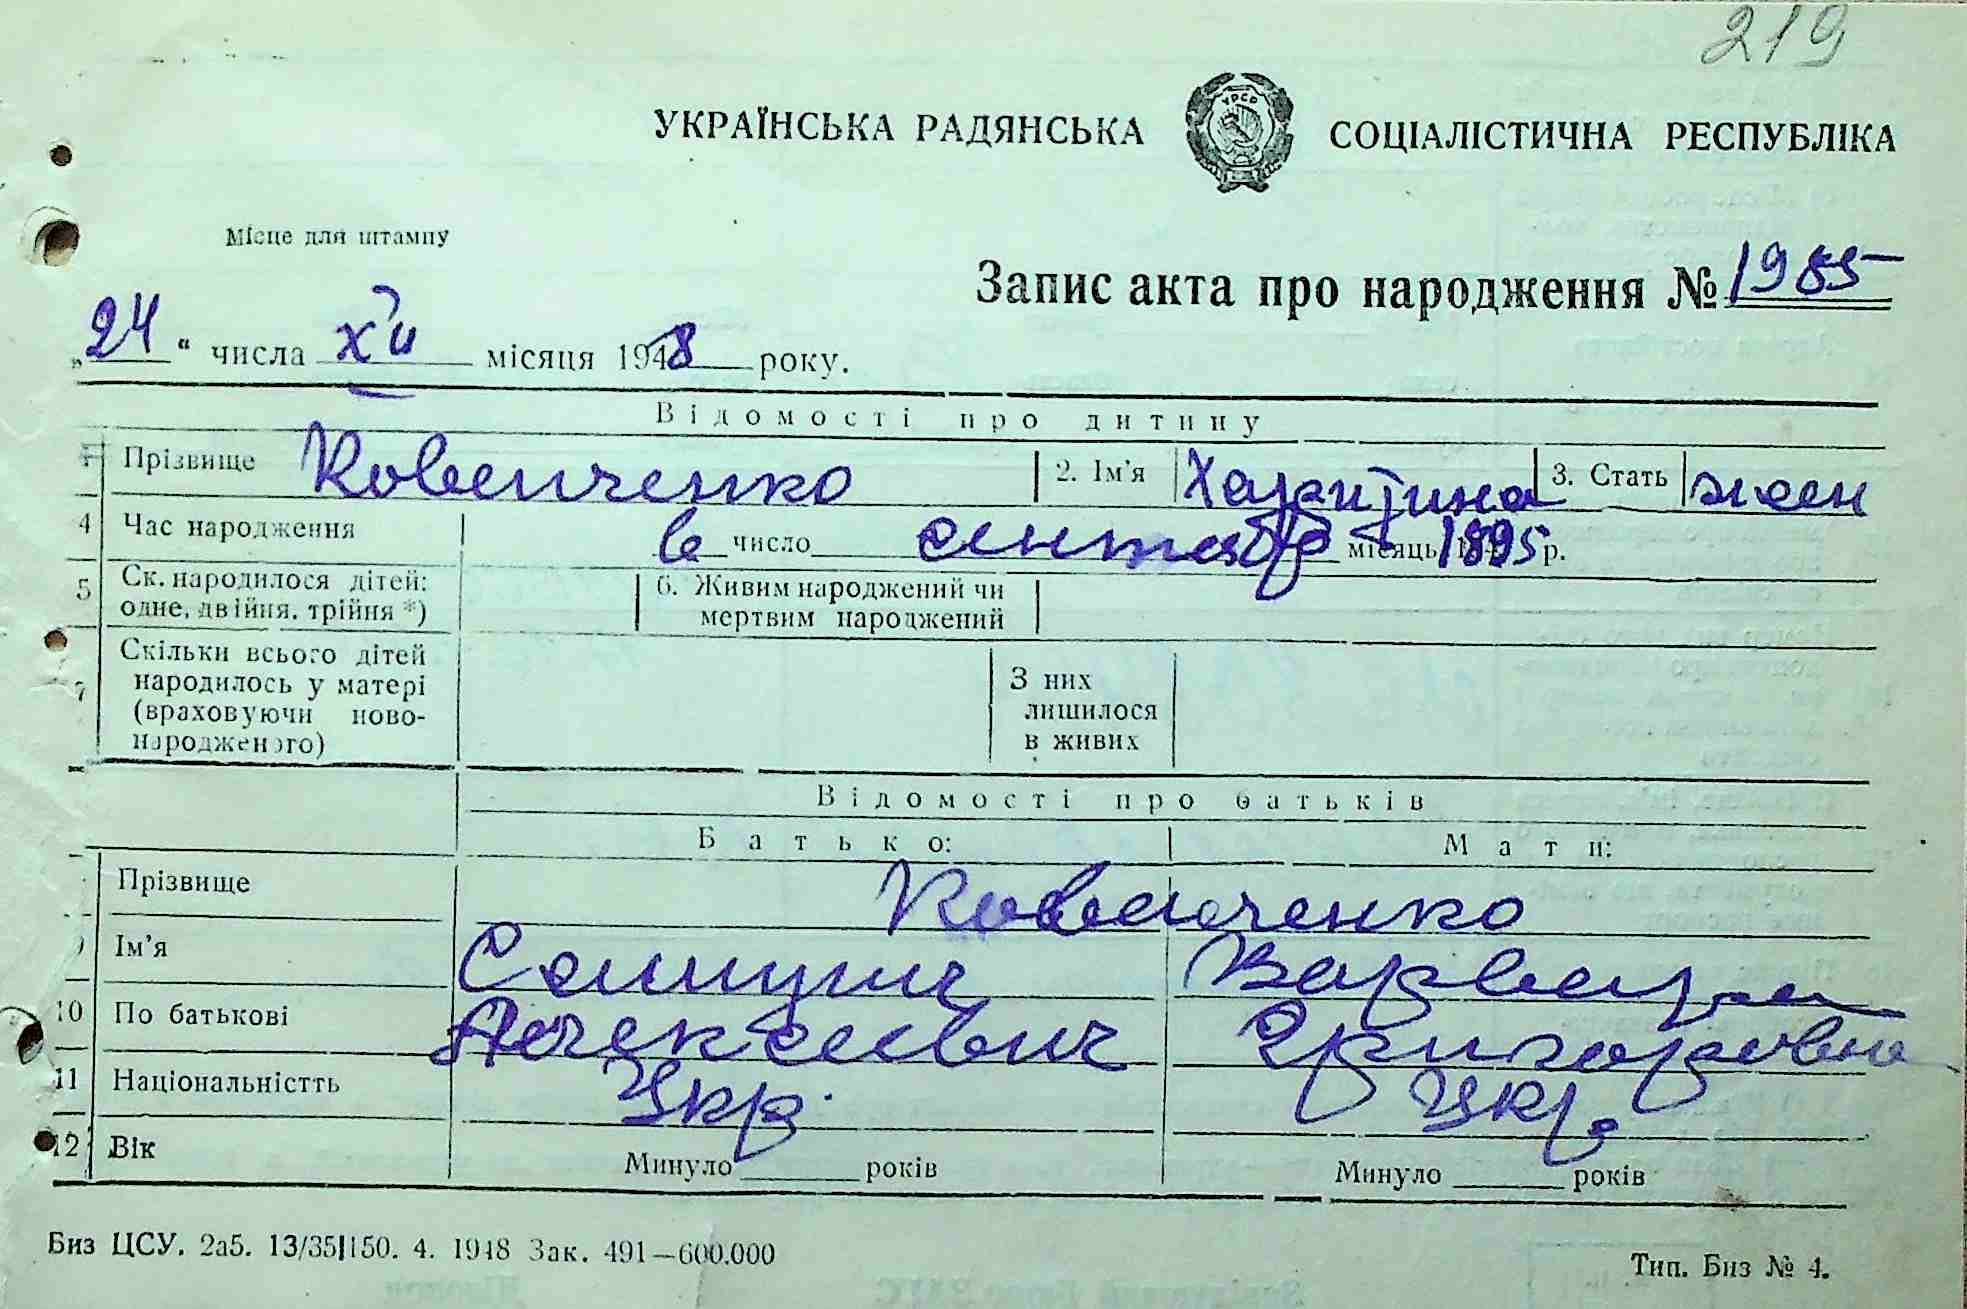 219
УКРАЇНСЬКА РАДЯНСЬКА СОЦІАЛІСТИЧНА РЕСПУБЛІКА
УРСР
Місце для штампу
Запис акта про народження № 1985
„24“ числа XII місяця 1948 року.
Відомості про дитину
1 Прізвище Ковенченко 2. Ім'я Харитина 3. Стать жен
4 Час народження 6 число сентябр місяць 1895 р.
5 Ск. народилося дітей: одне, двійня, трійня *) 6. Живим народжений чи мертвим народжений
7 Скільки всього дітей народилось у матері (враховуючи новонародженого) З них лишилося в живих
Відомості про батьків
Батько: Мати:
Прізвище Ковенченко
9 Ім'я Варвара
10 По батькові Алексеевич Григоровна
11 Національністть Укр. Укр.
12 Вік Минуло років Минуло років
Биз ЦСУ. 2а5. 13/35|150. 4. 1948 Зак. 491—600.000
Тип. Биз № 4.